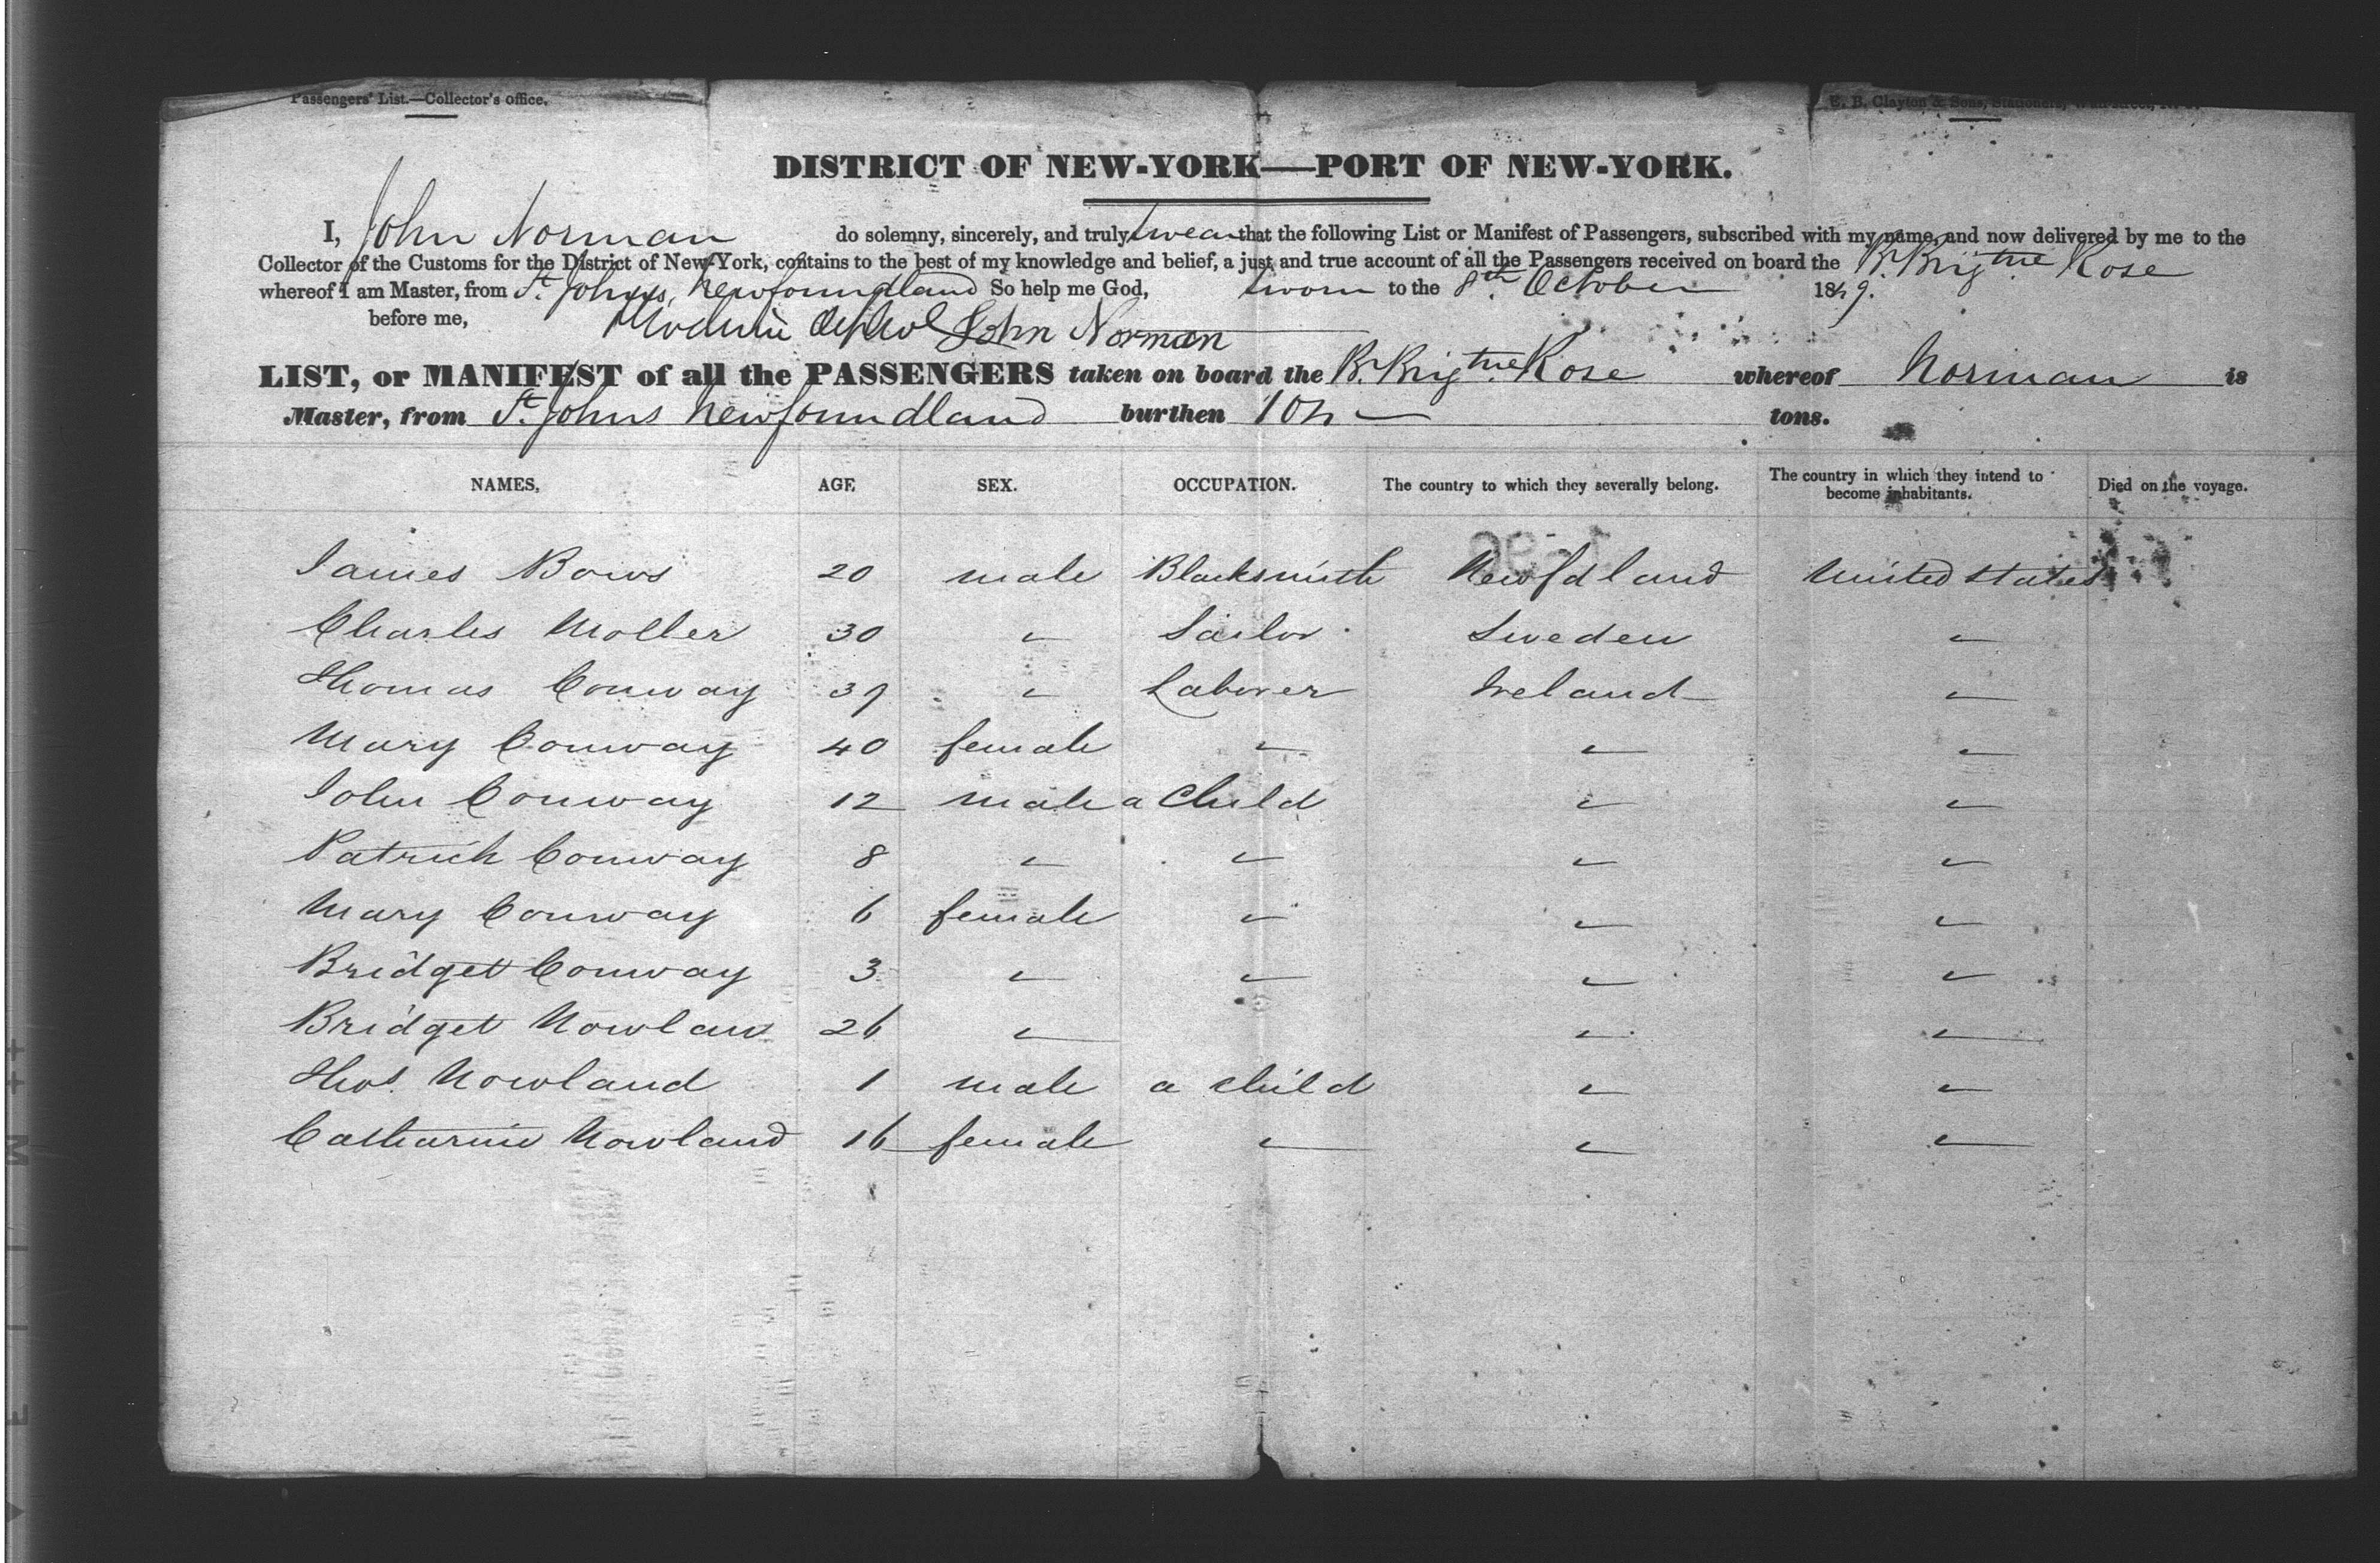 Passengers' List.—Collector's office.
E. B. Clayton & Sons, Stationers,
DISTRICT OF NEW-YORK—PORT OF NEW-YORK.
I, John Norman do solemny, sincerely, and truly swear that the following List or Manifest of Passengers, subscribed with my name, and now delivered by me to the
Collector of the Customs for the District of New-York, contains to the best of my knowledge and belief, a just and true account of all the Passengers received on board the Br. Brigtne Rose
whereof I am Master, from St. Johns, Newfoundland So help me God,
sworn to the 8th October 1849.
before me, John Norman
LIST, or MANIFEST of all the PASSENGERS taken on board the Br. Brigtne Rose whereof Norman is
Master, from St. Johns Newfoundland burthen 104 tons.
NAMES, AGE SEX. OCCUPATION. The country to which they severally belong. The country in which they intend to become inhabitants. Died on the voyage.
James Bows 20 male Blacksmith Newfdland United States
Charles Moller 30 " Sailor Sweden "
Thomas Conway 39 " Laborer Ireland "
Mary Conway 40 female " " "
John Conway 12 male a Child " "
Patrick Conway 8 " " " "
Mary Conway 6 female " " "
Bridget Conway 3 " " " "
Bridget Nowlan 26 " " "
Thos. Nowland 1 male a child " "
Catharine Nowland 16 female " " "